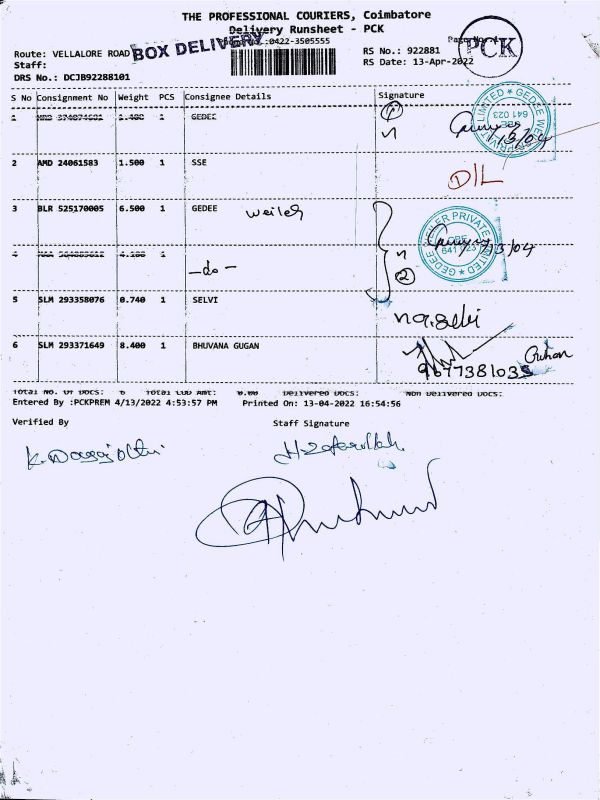 THE PROFESSIONAL COURIERS, Coimbatore
Delivery Runsheet - PCK
BOX DELIVERY :0422-3505555
PCK
Route: VELLALORE ROAD
RS No.: 922881
Staff:
RS Date: 13-Apr-2022
DRS No.: DCJB92288101
S No Consignment No Weight PCS Consignee Details Signature
1 1.480 1 GEDEE
1
13/04
GEDEE WEILER PRIVATE LIMITED CBE 641 023
2 AMD 24061583 1.500 1 SSE
D/L
3 BLR 525170005 6.500 1 GEDEE weiler
GEDEE WEILER PRIVATE LIMITED CBE 641 023
13/04
4 4.180 1 -do-
2
5 SLM 293358076 0.740 1 SELVI
6 SLM 293371649 8.400 1 BHUVANA GUGAN
9677381035
Total No. Of Docs: 6 Total COD Amt: 0.00 Delivered Docs: Non Delivered Docs:
Entered By :PCKPREM 4/13/2022 4:53:57 PM Printed On: 13-04-2022 16:54:56
Verified By Staff Signature